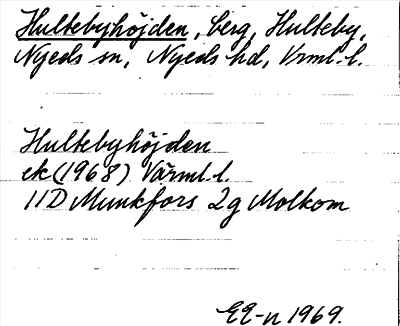 Hultebyhöjden, berg, Hulteby,
Nyeds sn, Nyeds hd, Vrml. l.
Hultebyhöjden
ek (1968) Värml. l.
11D Munkfors 2g Molkom
EE-n 1969.